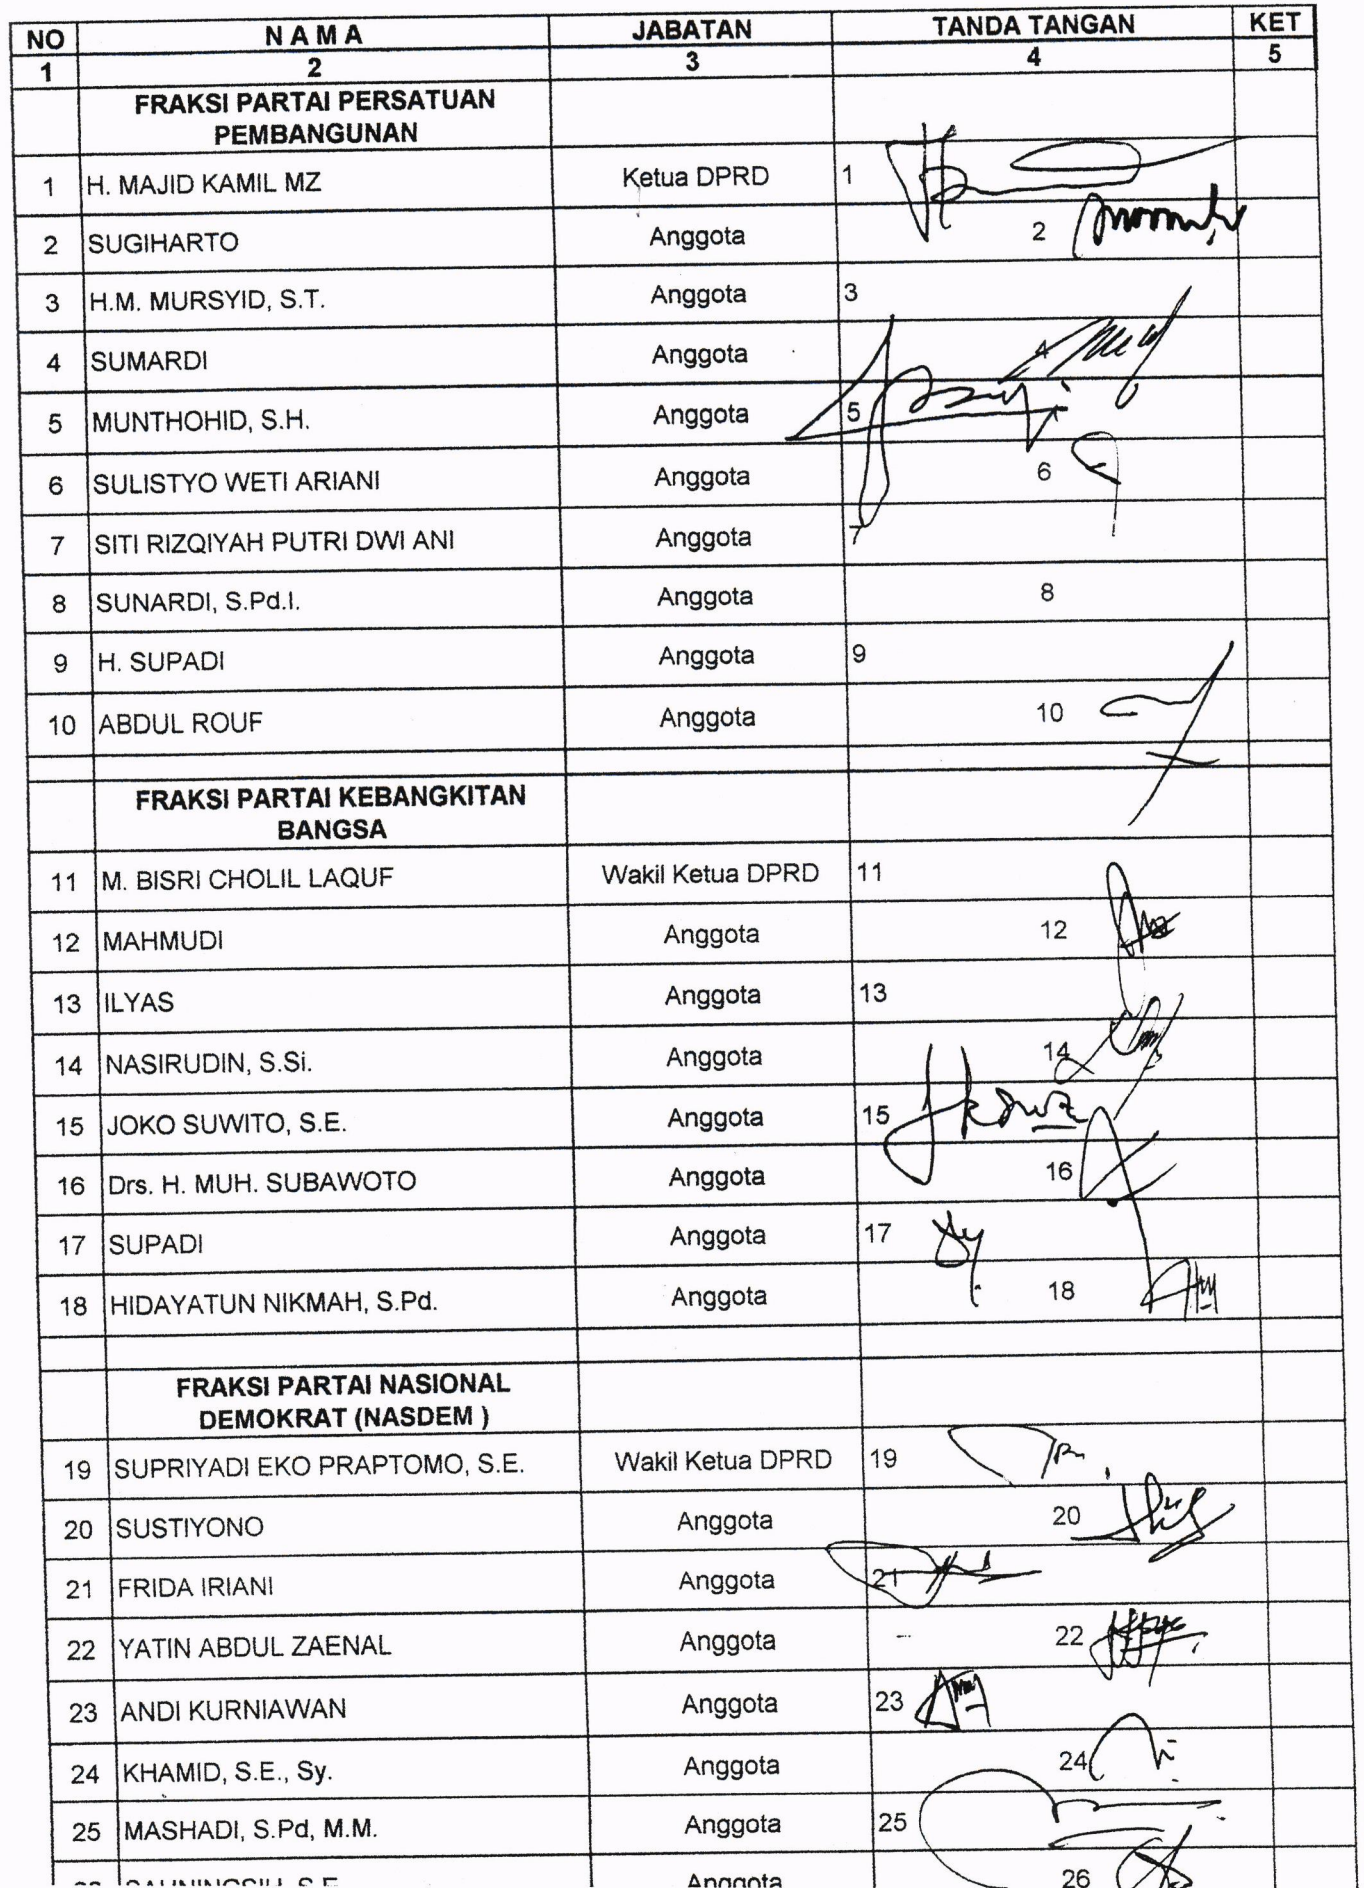 NO N A M A JABATAN TANDA TANGAN KET
1 2 3 4 5
FRAKSI PARTAI PERSATUAN
PEMBANGUNAN
1 H. MAJID KAMIL MZ Ketua DPRD 1
2 SUGIHARTO Anggota 2
3 H.M. MURSYID, S.T. Anggota 3
4 SUMARDI Anggota 4
5 MUNTHOHID, S.H. Anggota 5
6 SULISTYO WETI ARIANI Anggota 6
7 SITI RIZQIYAH PUTRI DWI ANI Anggota 7
8 SUNARDI, S.Pd.I. Anggota 8
9 H. SUPADI Anggota 9
10 ABDUL ROUF Anggota 10
FRAKSI PARTAI KEBANGKITAN
BANGSA
11 M. BISRI CHOLIL LAQUF Wakil Ketua DPRD 11
12 MAHMUDI Anggota 12
13 ILYAS Anggota 13
14 NASIRUDIN, S.Si. Anggota 14
15 JOKO SUWITO, S.E. Anggota 15
16 Drs. H. MUH. SUBAWOTO Anggota 16
17 SUPADI Anggota 17
18 HIDAYATUN NIKMAH, S.Pd. Anggota 18
FRAKSI PARTAI NASIONAL
DEMOKRAT (NASDEM )
19 SUPRIYADI EKO PRAPTOMO, S.E. Wakil Ketua DPRD 19
20 SUSTIYONO Anggota 20
21 FRIDA IRIANI Anggota 21
22 YATIN ABDUL ZAENAL Anggota 22
23 ANDI KURNIAWAN Anggota 23
24 KHAMID, S.E., Sy. Anggota 24
25 MASHADI, S.Pd, M.M. Anggota 25
Anggota 26